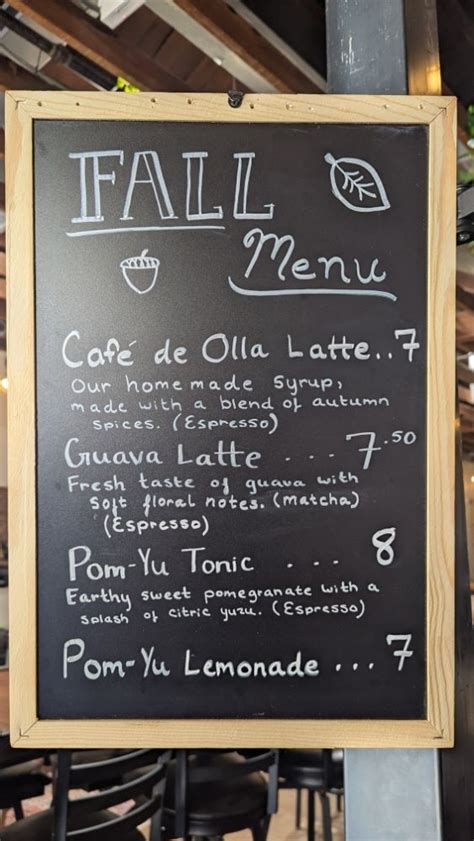 FALL
Menu
Café de Olla Latte..7
Our homemade Syrup,
made with a blend of autumn
spices. (Espresso)
Guava Latte ... 7.50
Fresh taste of guava with
soft floral notes. (Matcha)
(Espresso)
Pom-Yu Tonic ... 8
Earthy sweet pomegranate with a
splash of citric yuzu. (Espresso)
Pom-Yu Lemonade ... 7